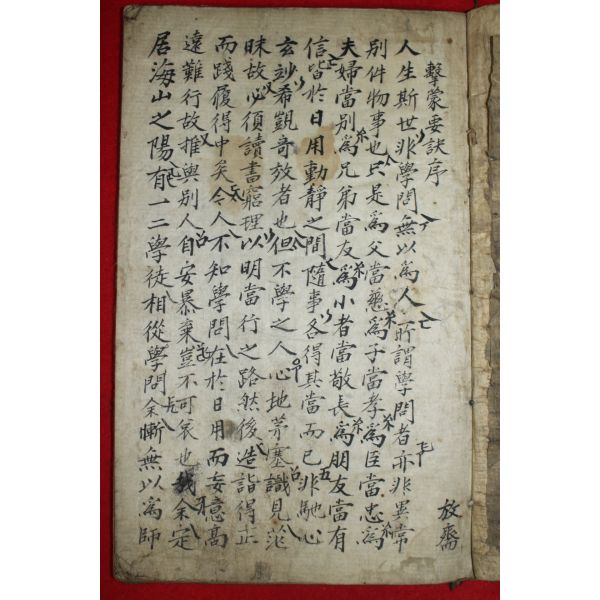 擊蒙要訣序 放齋
人生斯世非學問無以爲人所謂學問者亦非異常
別件物事也只是爲父當慈爲子當孝爲臣當忠爲
夫婦當別爲兄弟當友爲小者當敬長爲朋友當有
信皆於日用動靜之間隨事各得其當而已非馳心
玄玅希覬奇效者也但不學之人心地茅塞識見茫
昧故必須讀書窮理以明當行之路然後造詣得正
而踐履得中矣今人不知學問在於日用而妄憶高
遠難行故推與別人自安暴棄豈不可哀也哉余定
居海山之陽有一二學徒相從學問余慚無以爲師